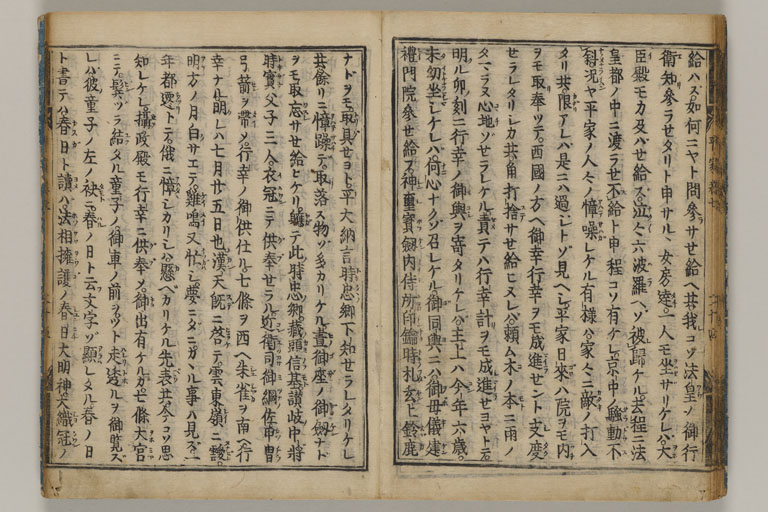 給ハズ如何ニヤト問參サセ給ヘ共我コソ法皇ノ御行
衛知參ラセタリト申サルヽ女房達一人モ坐サリケレバ大
臣殿モ力及バセ給ズ泣々六波羅ヘゾ被歸ケル去程ニ法
皇都ノ中ニ渡ラセ不給ト申程コソ有ケレ京中ノ騒動不
斜況ヤ平家ノ人々ノ憚噪レケル有様ハ家々ニ敵ノ打入
タリ共限アレバ是ニハ過ジトゾ見ヘシ平家日來ハ院ヲモ内
ヲモ取奉ツテ西國ノ方ヘ御幸行幸ヲモ成進セント支度
セラレタリシカ共角打捨サセ給ヒヌレバ頼ム木ノ本ニ雨ノ
タマラヌ心地ゾセラレケル責テハ行幸計ヲモ成進セヨヤトテ
明ル卯ノ刻ニ行幸ノ御輿ヲ寄タリケレバ主上ハ今年六歳
未幼坐シケレバ何心ナクゾ召レケル御同輿ニハ御母儀建
禮門院參セ給フ神璽寶劔内侍所印鑰時札玄上鈴鹿
ナドヲモ取具セヨト平大納言時忠卿下知セラレタリケレ
共餘リニ憚躁デ取落ス物ゾ多カリケル晝御座ノ御劔ナド
ヲモ取忘サセ給ヒケリ軈テ此時忠卿藏頭信基讃岐中將
時實父子三人衣冠ニテ供奉セラル近衛司御綱佐甲冑
弓箭ヲ帶メ行幸ノ御供仕ル七條ヲ西ヘ朱雀ヲ南ヘ行
幸ナル明レバ七月廿五日也漢天既ニ啓テ雲東嶺ニ靉
明方ノ月白サエテ雞鳴又忙シ夢ニダニカヽル事ハ見ズ一
年都遷トテ俄ニ憚シカリシハ懸ベカリケル先表共今コソ思
知レケレ攝政殿モ行幸ニ供奉メ御出有ケルガ七條大宮
ニテ鬟ヅラ結タル童子ノ御車ノ前ヲツト走透ルヲ御覧ズ
レバ彼童子ノ左ノ袂ニ春ノ日ト云文字ゾ顯レタル春ノ日
ト書テハ春日ト讀バ法相擁護ノ春日大明神大織冠ノ